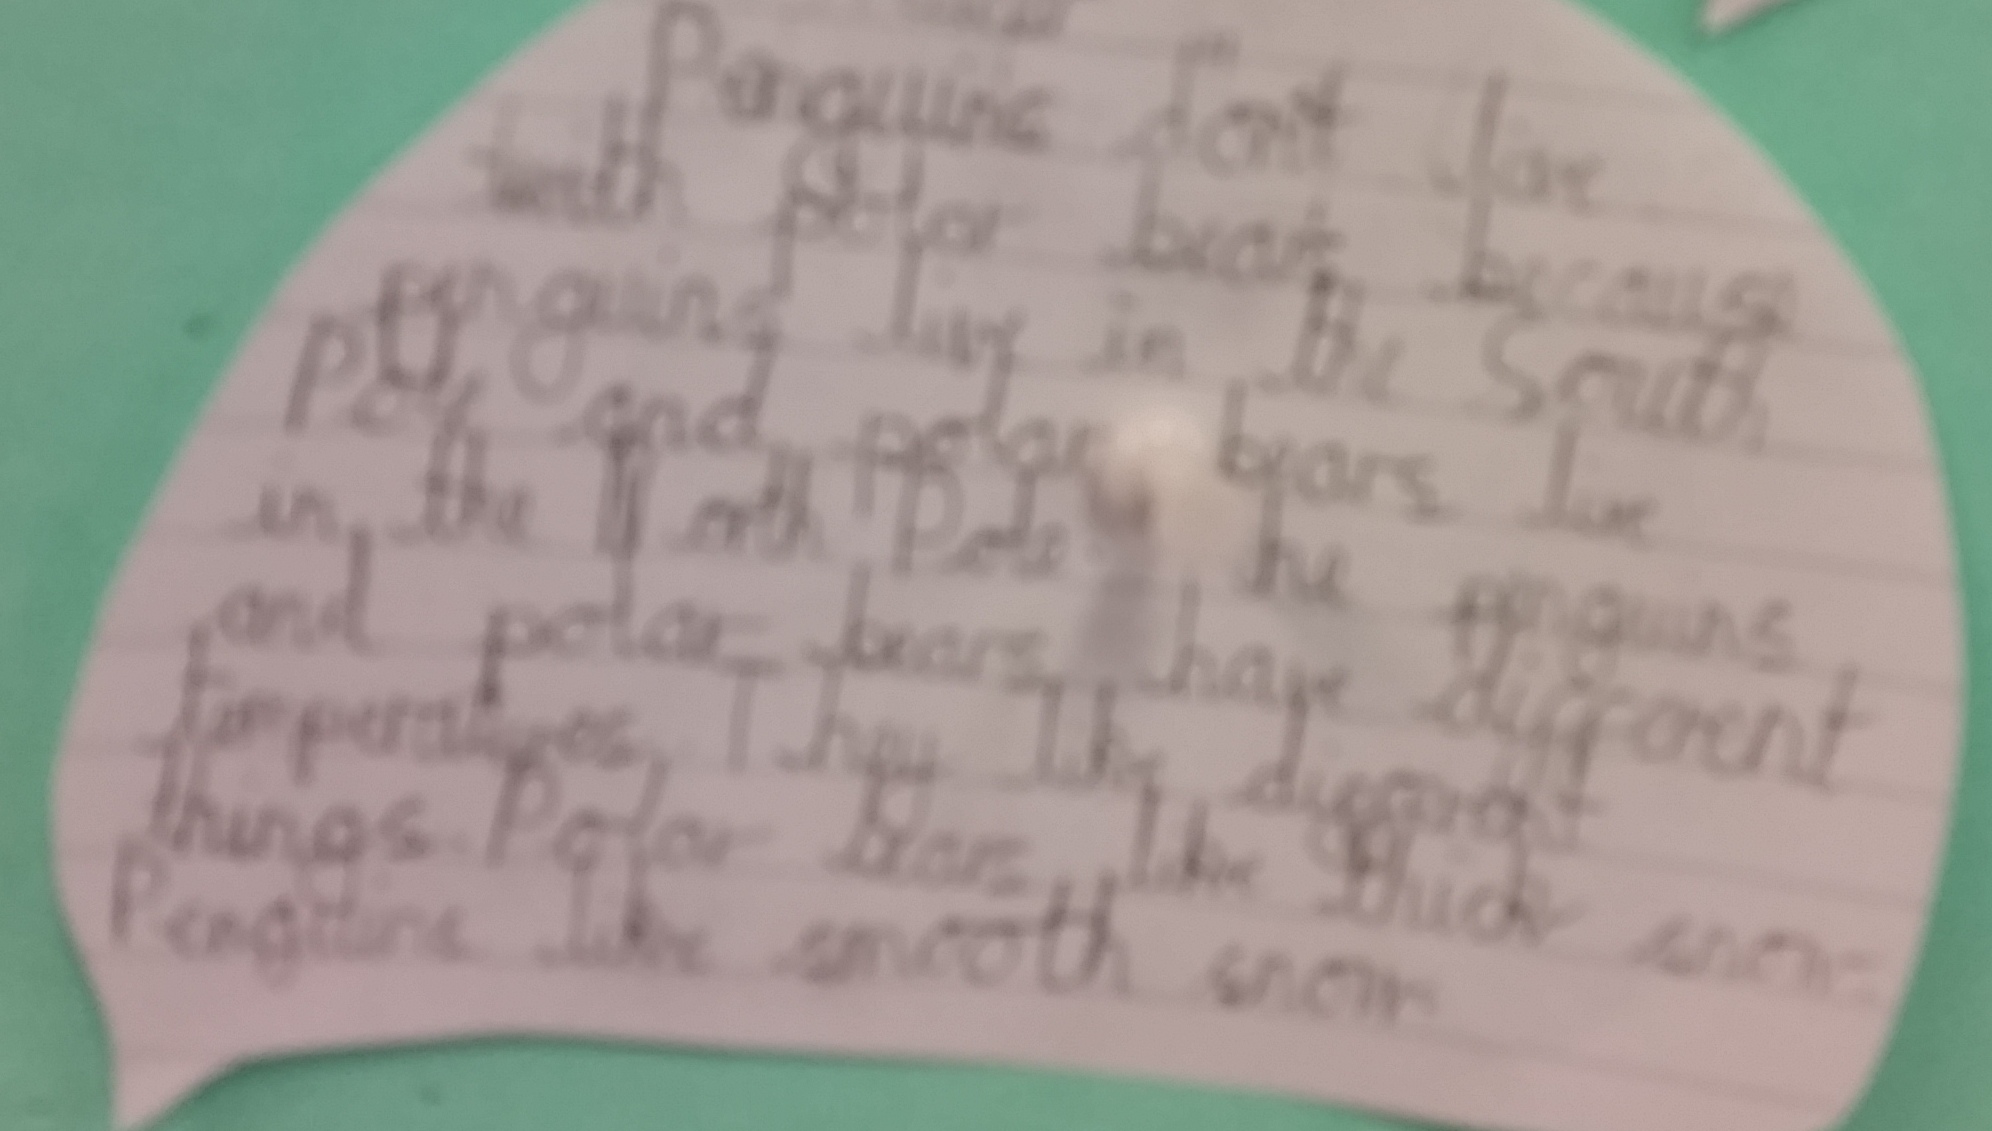 Penguins don't live
with polar bears because
penguins live in the South
Pole and polar bears live
in the North Pole the penguins
and polar bears have different
temperatures. They like different
things. Polar Bears like thick snow
Penguins like smooth snow